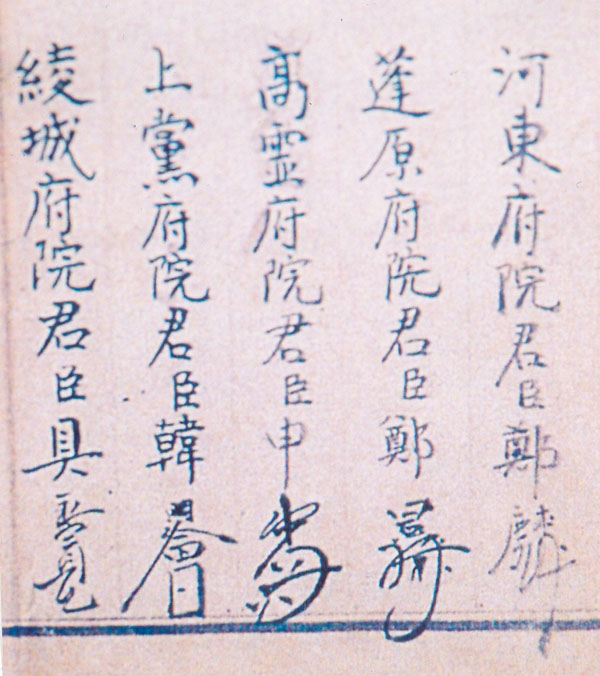 河東府院君臣鄭麟
蓬原府院君臣鄭
高霊府院君臣申
上黨府院君臣韓
綾城府院君臣具